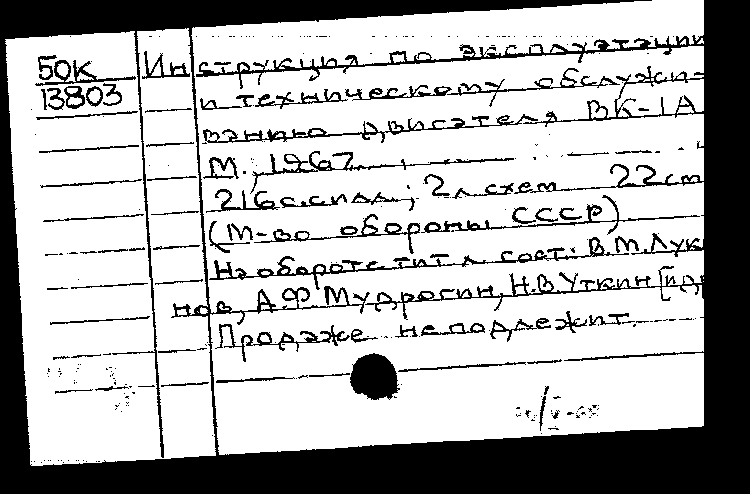 50К Инструкция по эксплуатации
13803 и техническому обслужи-
ванию двигателя ВК-1А
М., 1967
216 с. с илл.; 2 л. схем 22 см
(М-во обороны СССР)
На обороте тит. л. сост.: В.М.Лук
нов, А.Ф.Мудрогин, Н.В.Уткин [и др
Продаже не подлежит.